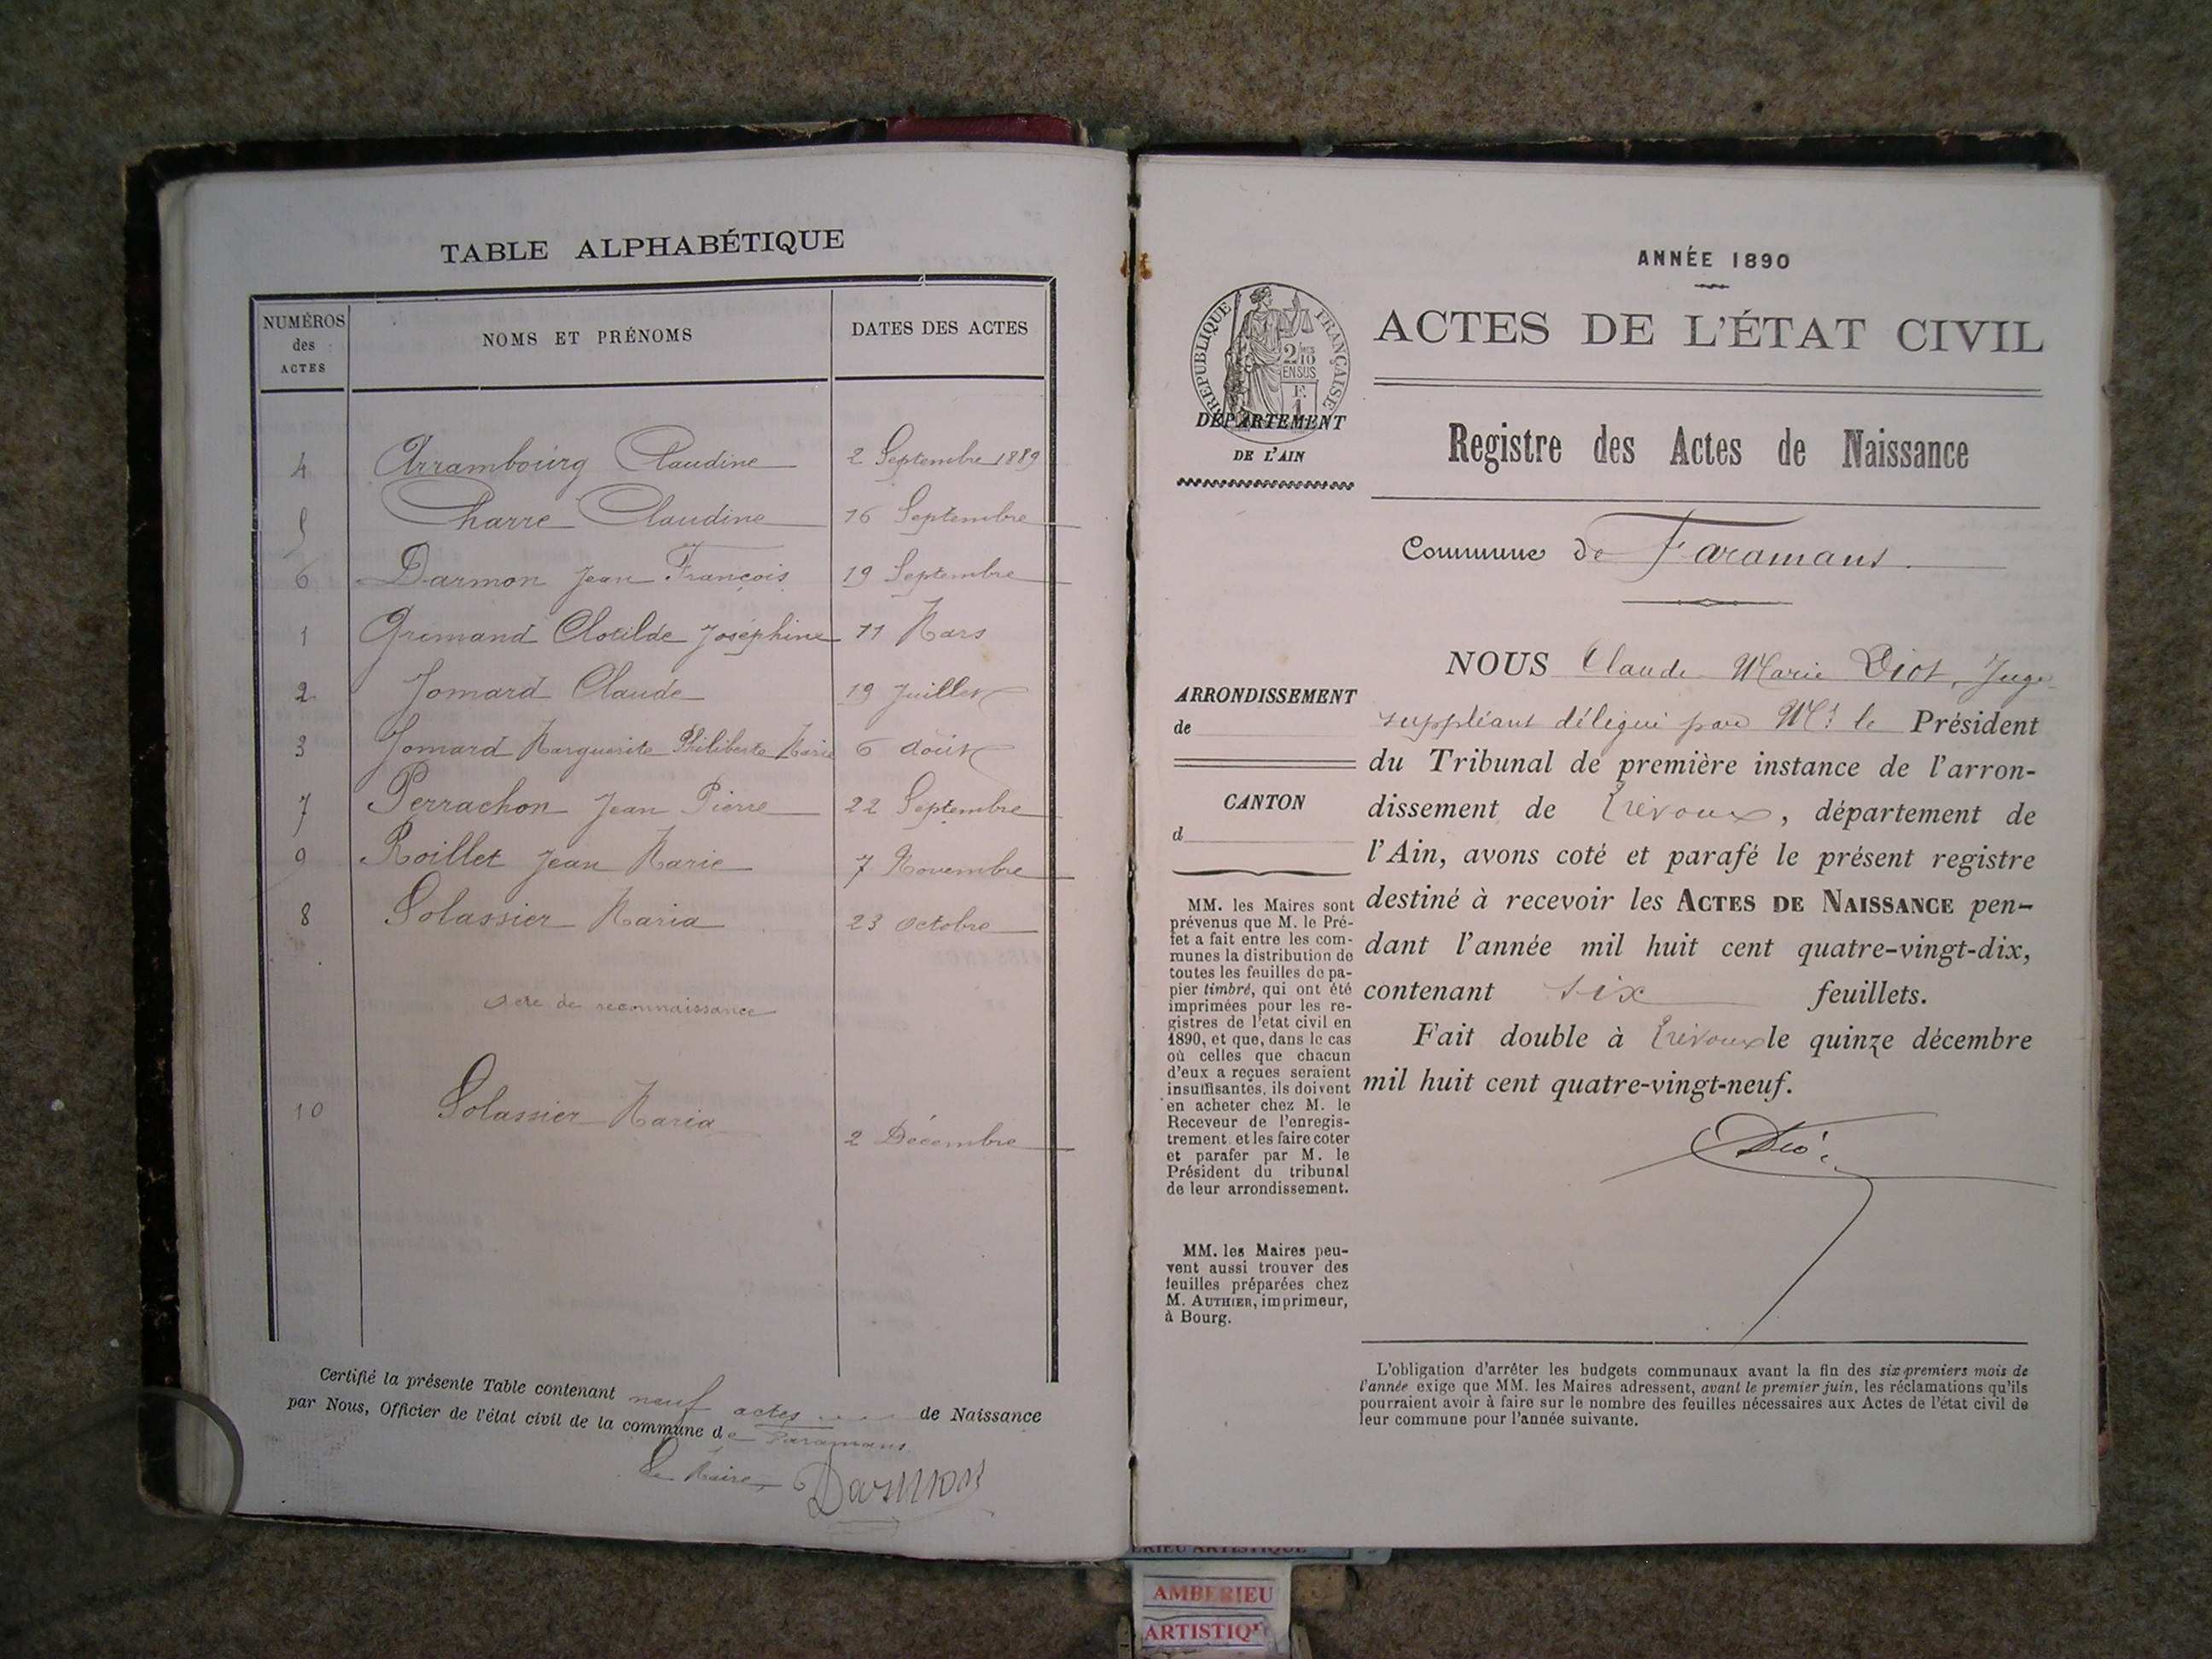 TABLE ALPHABÉTIQUE
NUMÉROS des ACTES NOMS ET PRÉNOMS DATES DES ACTES
4 Arrambourg Claudine 2 Septembre 1889
5 Charre Claudine 16 Septembre
6 Darmon Jean François 19 Septembre
1 Grimand Clotilde Joséphine 11 Mars
2 Jomard Claude 19 Juillet
3 Jomard Marguerite Philiberte Marie 6 Août
7 Perrachon Jean Pierre 22 Septembre
9 Roillet Jean Marie 7 Novembre
8 Solassier Maria 23 Octobre
Acte de reconnaissance
10 Solassier Maria 2 Décembre
Certifié la présente Table contenant neuf actes de Naissance
par Nous, Officier de l'état civil de la commune de Faramans.
Le Maire, Darmon
ANNÉE 1890
ACTES DE L'ÉTAT CIVIL
RÉPUBLIQUE FRANÇAISE
2/10 EN SUS
F. 1
DÉPARTEMENT
DE L'AIN
Registre des Actes de Naissance
Commune de Faramans.
ARRONDISSEMENT
de
CANTON
d
MM. les Maires sont
prévenus que M. le Pré-
fet a fait entre les com-
munes la distribution de
toutes les feuilles de pa-
pier timbré, qui ont été
imprimées pour les re-
gistres de l'etat civil en
1890, et que, dans le cas
où celles que chacun
d'eux a reçues seraient
insuffisantes, ils doivent
en acheter chez M. le
Receveur de l'enregis-
trement et les faire coter
et parafer par M. le
Président du tribunal
de leur arrondissement.
MM. les Maires peu-
vent aussi trouver des
feuilles préparées chez
M. AUTHIER, imprimeur,
à Bourg.
NOUS Claude Marie Diot, Juge
suppléant délégué par Mr. le Président
du Tribunal de première instance de l'arron-
dissement de Trévoux, département de
l'Ain, avons coté et parafé le présent registre
destiné à recevoir les ACTES DE NAISSANCE pen-
dant l'année mil huit cent quatre-vingt-dix,
contenant six feuillets.
Fait double à Trévoux le quinze décembre
mil huit cent quatre-vingt-neuf.
L'obligation d'arrêter les budgets communaux avant la fin des six premiers mois de
l'année exige que MM. les Maires adressent, avant le premier juin, les réclamations qu'ils
pourraient avoir à faire sur le nombre des feuilles nécessaires aux Actes de l'état civil de
leur commune pour l'année suivante.
AMBERIEU
ARTISTIQ